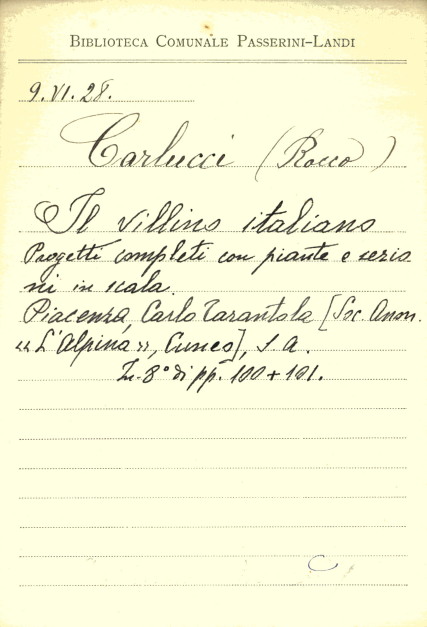 BIBLIOTECA COMUNALE PASSERINI-LANDI
9.VI.28.
Carlucci (Rocco)
Il villino italiano
Progetti completi con piante e sezio
ni in scala.
Piacenza, Carlo Tarantola [Soc. Anon.
«L'Alpina», Cuneo], S A.
In-8° di pp. 100+101.
C